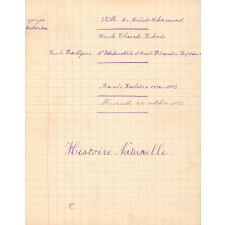 Ville de Saint-Chamond
Ecole Claude Lebois
Ecole Pratique d'Industrie et Ecole Primaire Supérieure
Année Scolaire
Mercredi octobre
Histoire Naturelle.